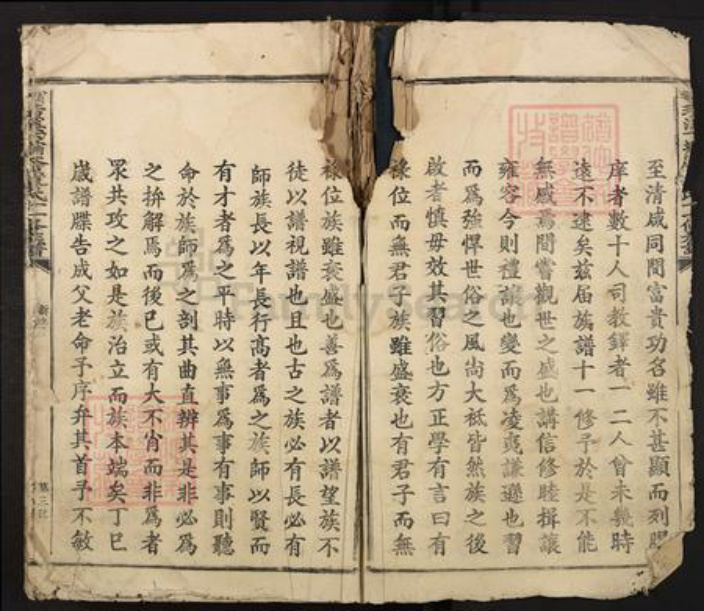 至清咸同間富貴功名雖不甚顯而列膠
庠者數十人司教鐸者一二人曾未幾時
遠不逮矣茲届族譜十一修予於是不能
無感焉間嘗觀世之盛也講信修睦揖讓
雍容今則禮讓也變而爲凌夷謙遜也習
而爲強悍世俗之風尚大祗皆然族之後
啟者慎毋效其習俗也方正學有言曰有
祿位而無君子族雖盛衰也有君子而無
祿位族雖衰盛也善爲譜者以譜望族不
徒以譜視譜也且也古之族必有長必有
師族長以年長行高者爲之族師以賢而
有才者爲之平時以無事爲事有事則聽
命於族師爲之剖其曲直辨其是非必爲
之拚解焉而後已或有大不肖而非爲者
眾共攻之如是族治立而族本端矣丁巳
歲譜牒告成父老命予序弁其首予不敏
FamilySearch